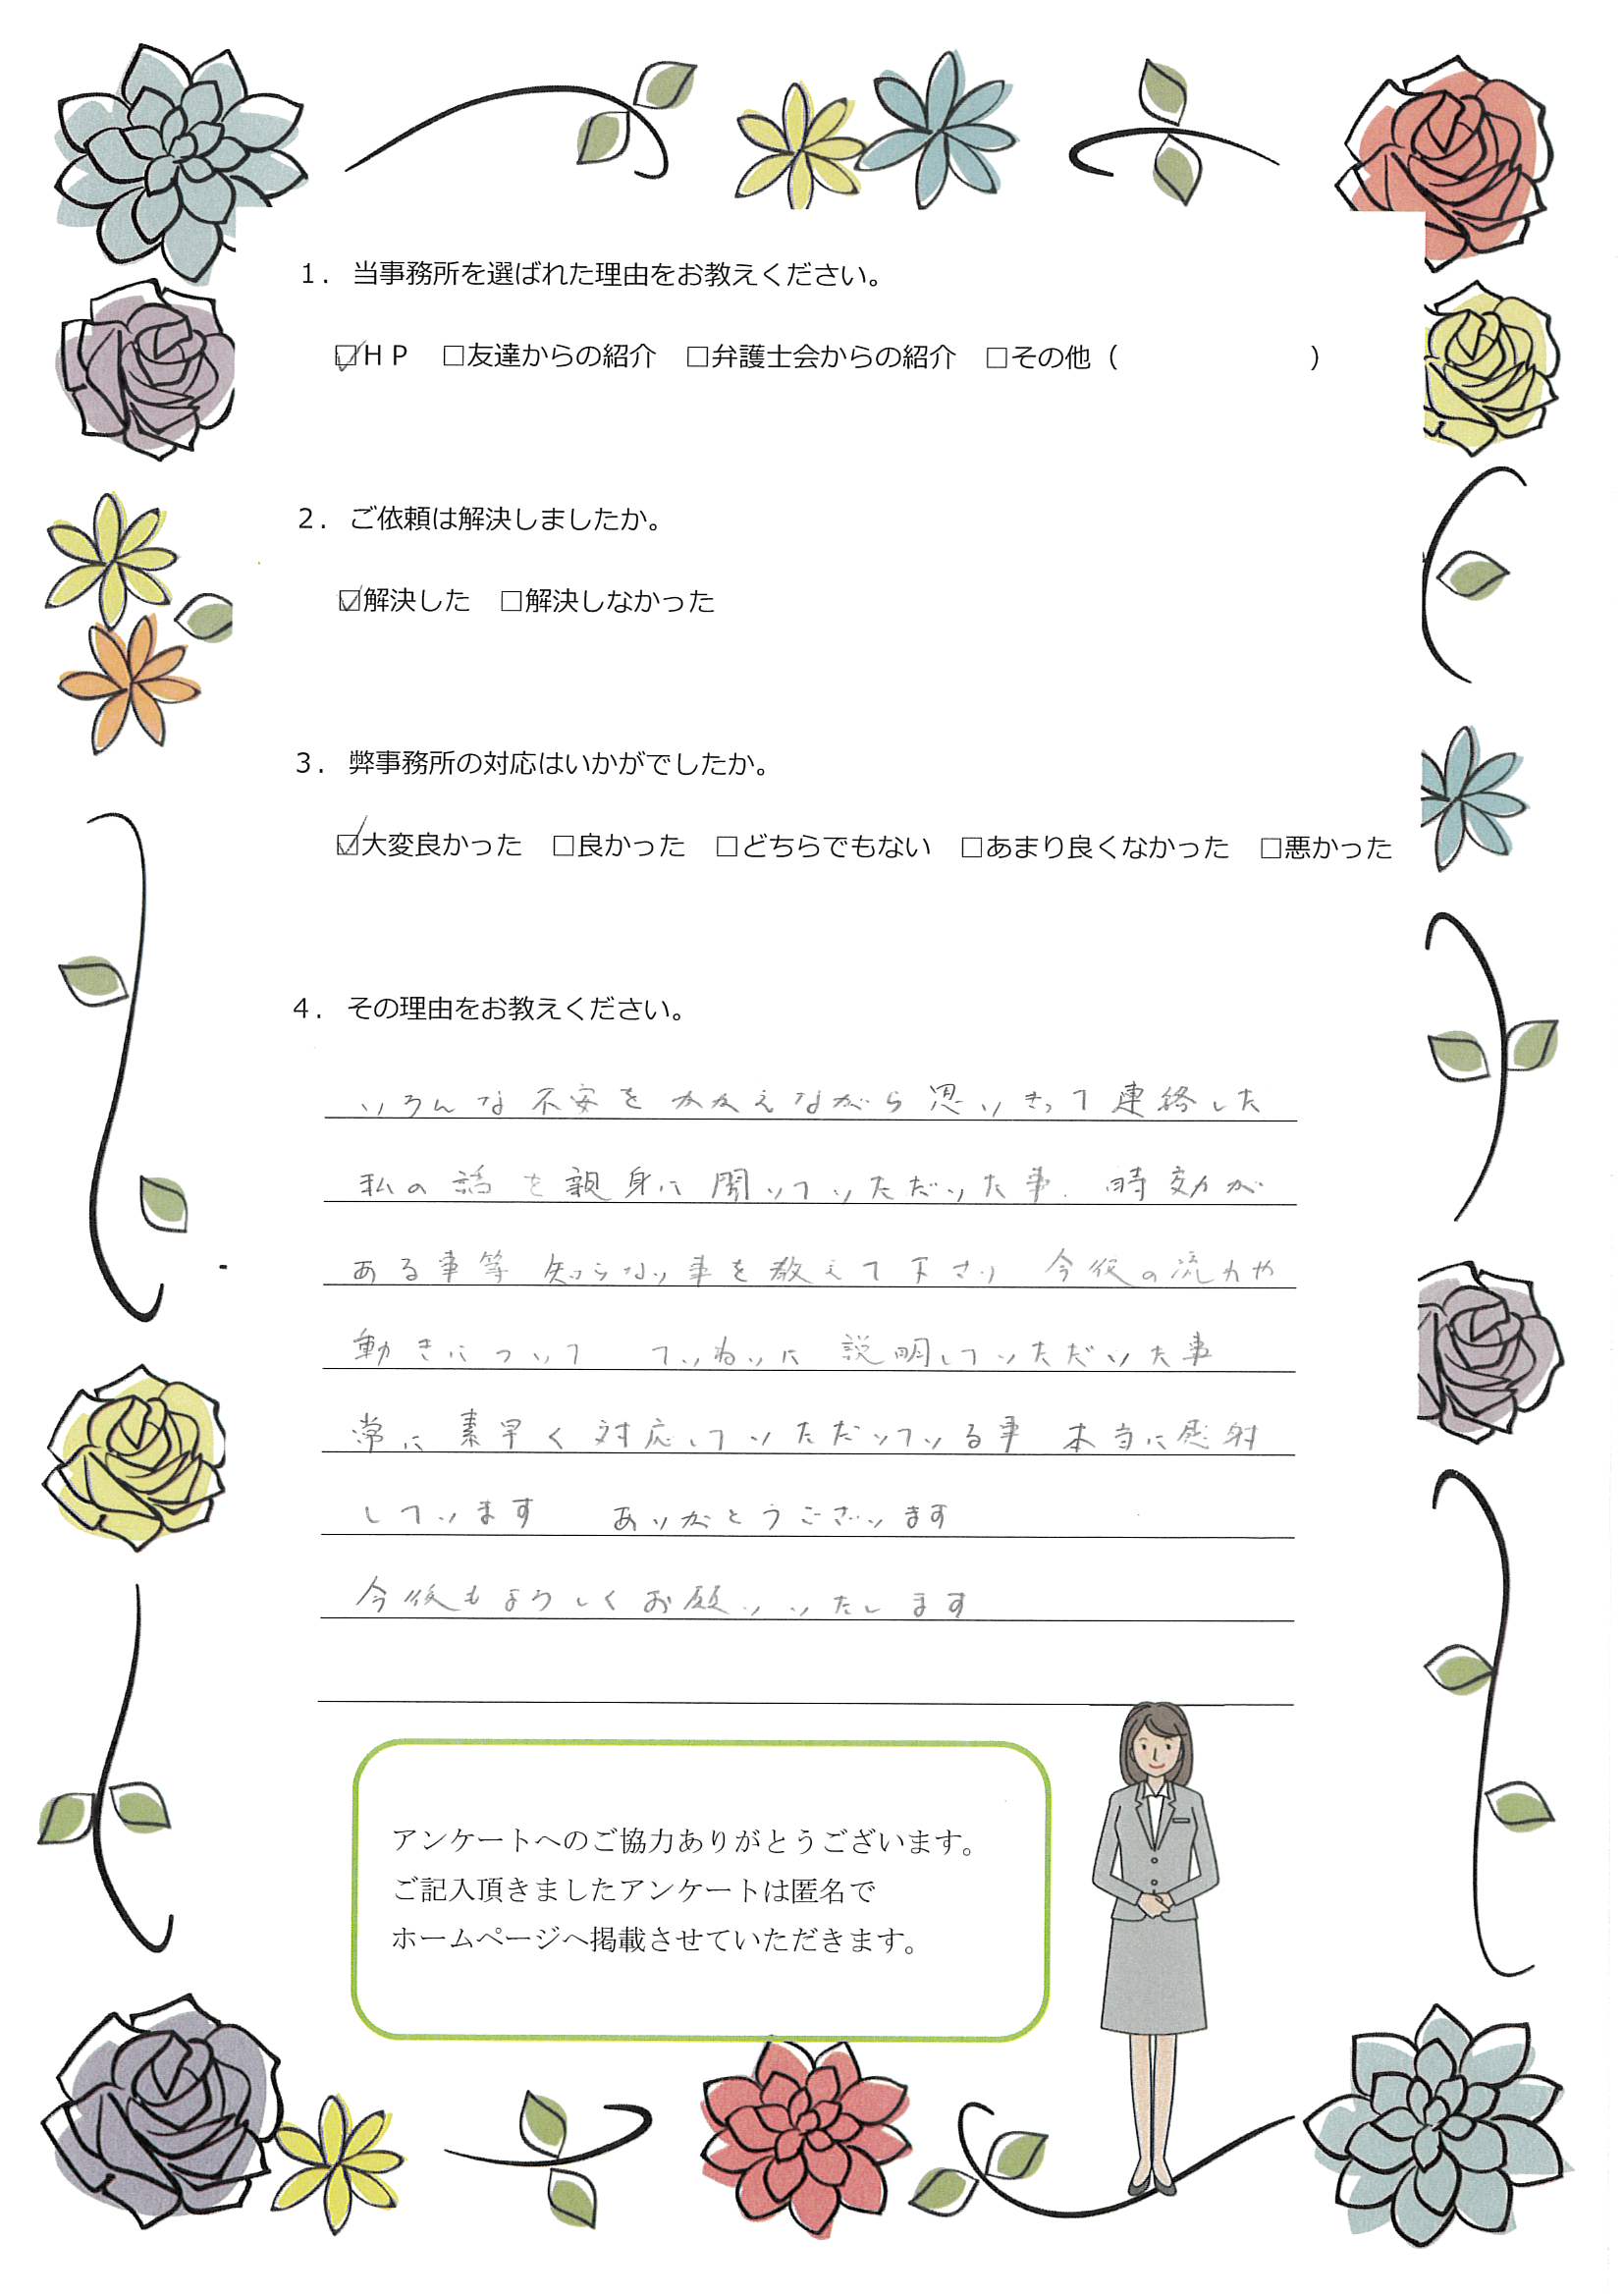 １． 当事務所を選ばれた理由をお教えください。
☑ＨＰ □友達からの紹介 □弁護士会からの紹介 □その他（ ）
２． ご依頼は解決しましたか。
☑解決した □解決しなかった
３． 弊事務所の対応はいかがでしたか。
☑大変良かった □良かった □どちらでもない □あまり良くなかった □悪かった
４． その理由をお教えください。
いろんな不安をかかえながら思いきって連絡した
私の話を親身に聞いていただいた事、時効が
ある事等 知らない事を教えて下さり 今後の流れや
動きについて ていねいに説明していただいた事
常に素早く対応していただいている事 本当に感謝
しています ありがとうございます
今後もよろしくお願いいたします
アンケートへのご協力ありがとうございます。
ご記入頂きましたアンケートは匿名で
ホームページへ掲載させていただきます。